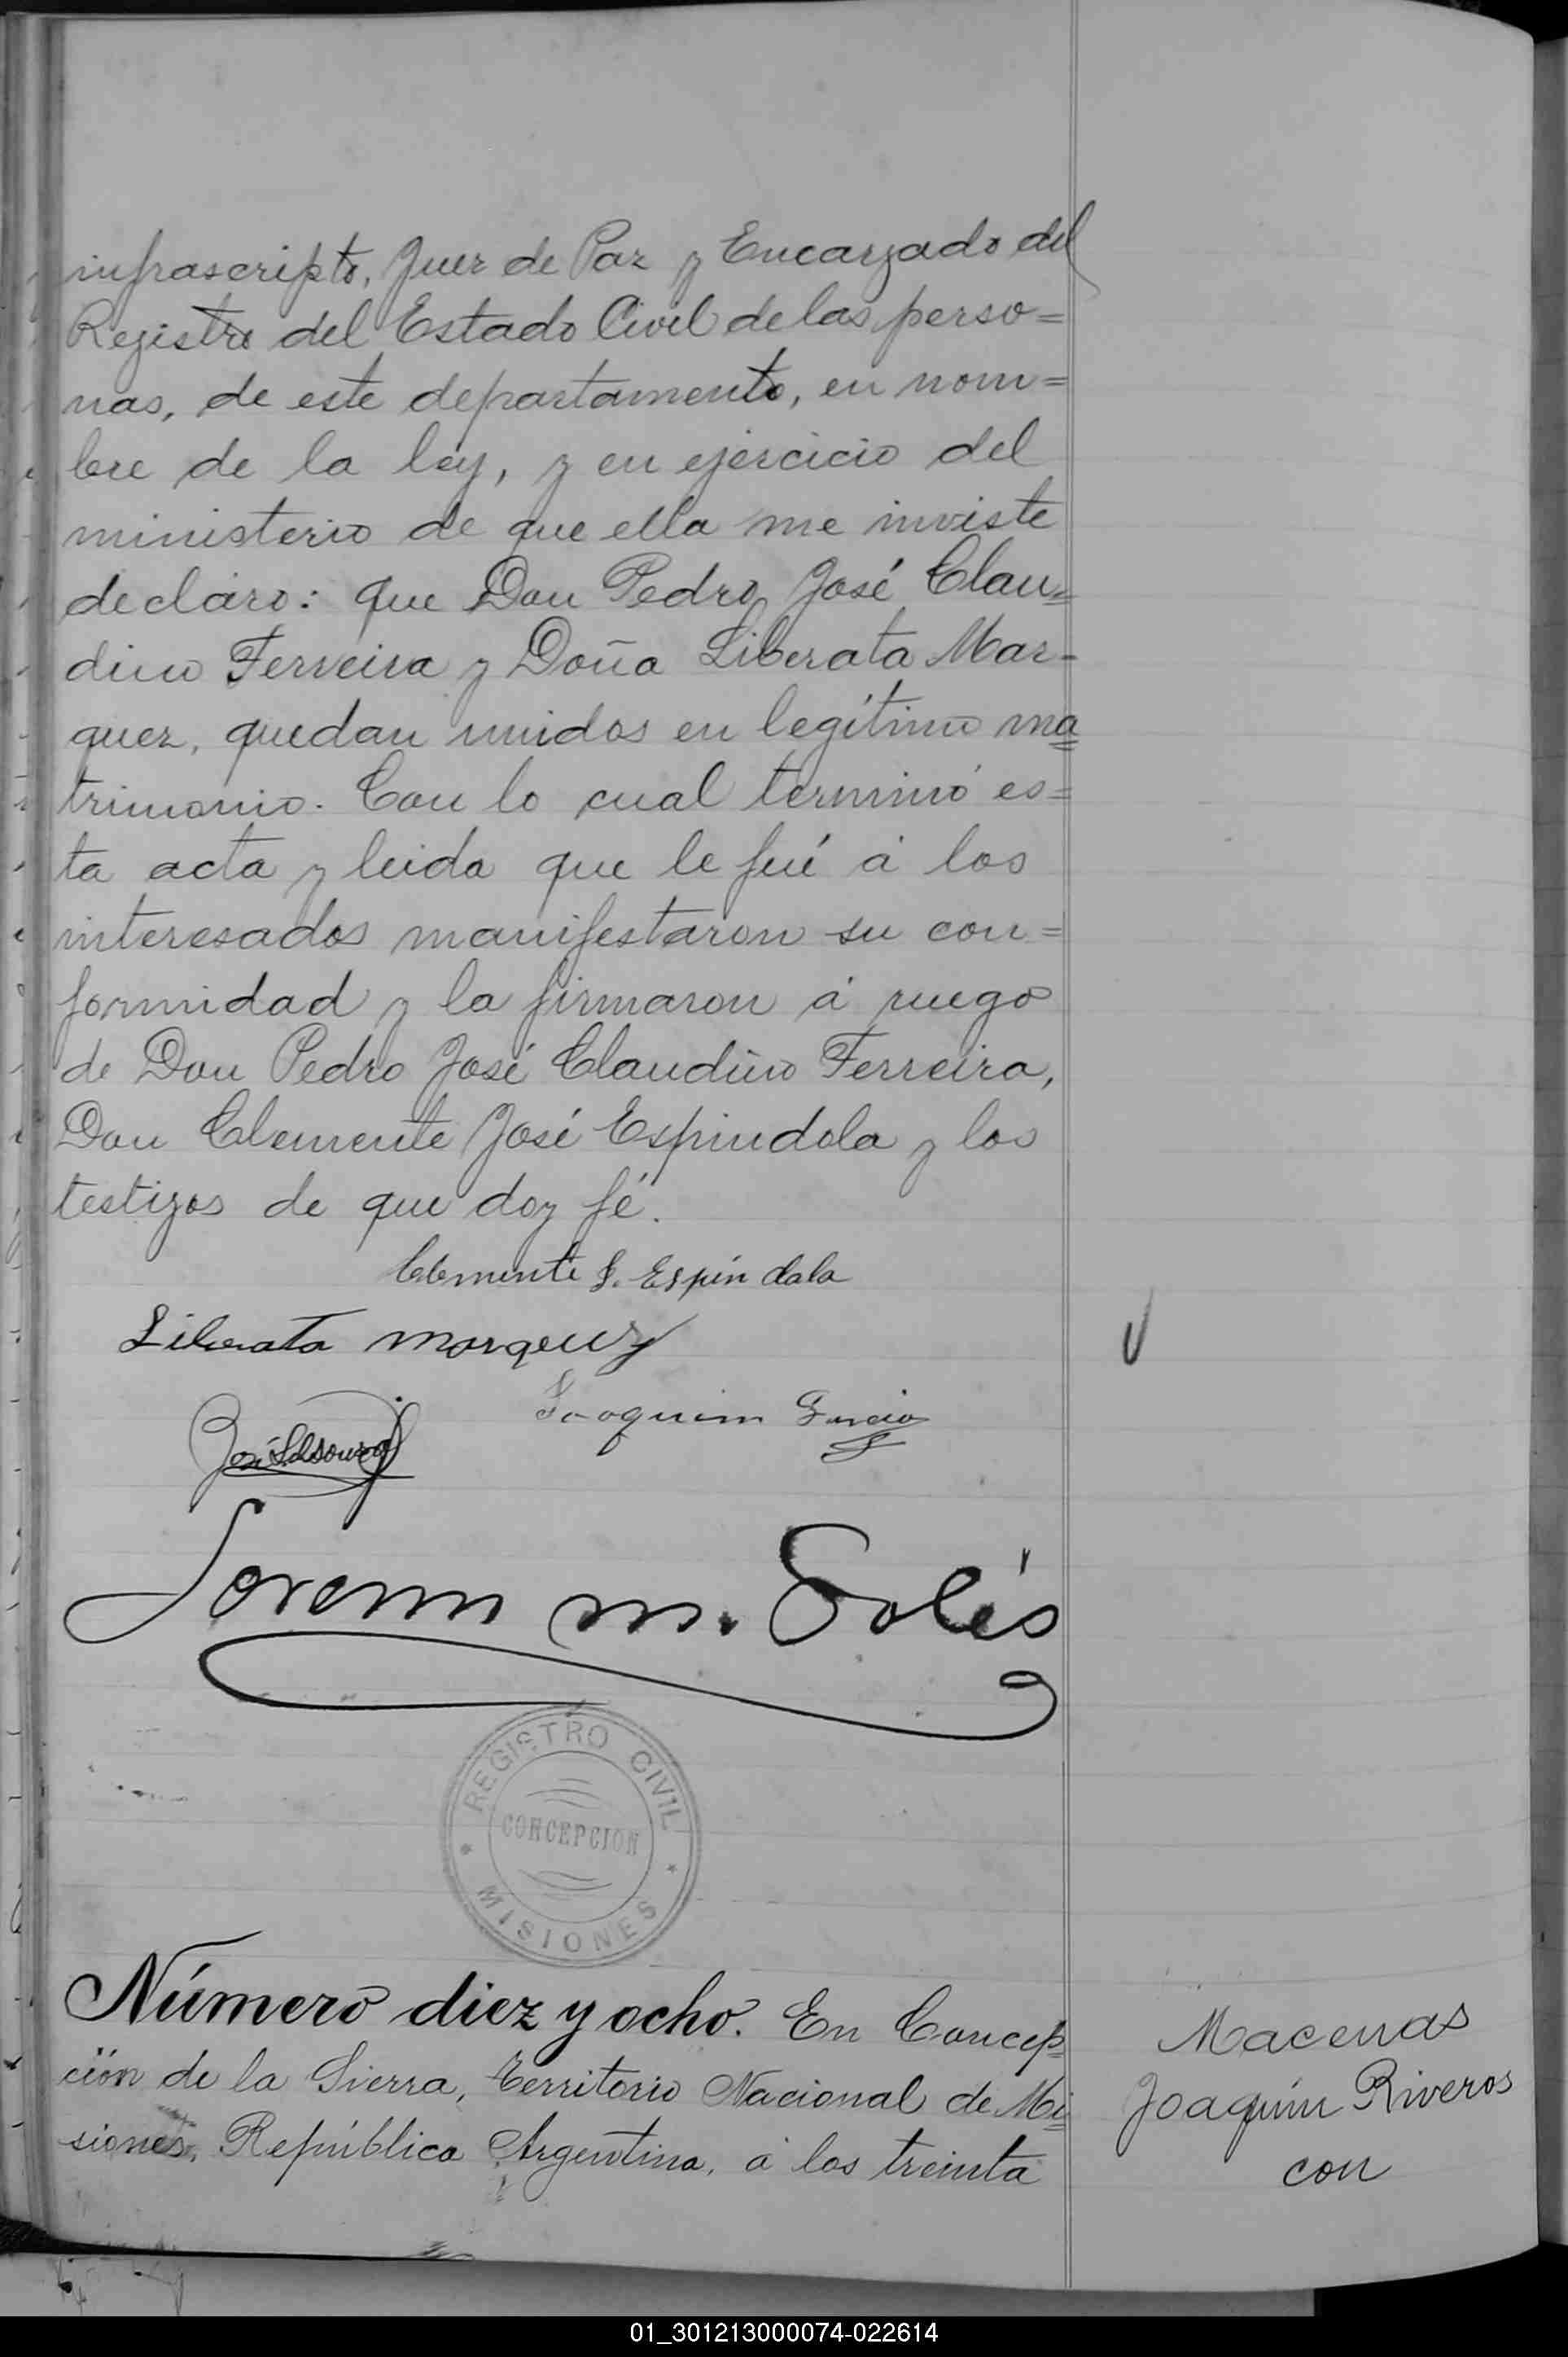 infrascripto, Juez de Paz y Encargado del
Registro del Estado Civil de las perso=
nas, de este departamento, en nom=
bre de la ley, y en ejercicio del
ministerio de que ella me inviste
declaro: que Don Pedro José Clau=
dino Ferreira y Doña Liberata Mar-
quez, quedan unidos en legítimo ma=
trimonio. Con lo cual terminó es=
ta acta y leida que le fué á los
interesados manifestaron su con=
formidad y la firmaron á ruego
de Don Pedro José Claudino Ferreira,
Don Clemente José Espindola y los
testigos de que doy fé.
Clemente J. Espin dola
Liberata Marquez
Joaquim
José
m. Solés
REGISTRO CIVIL
CONCEPCION
MISIONES
Número diez y ocho. En Concep=
ción de la Sierra, Territorio Nacional de Mi=
siones, República Argentina, á los treinta
Macenas
Joaquín Riveros
con
01_301213000074-022614